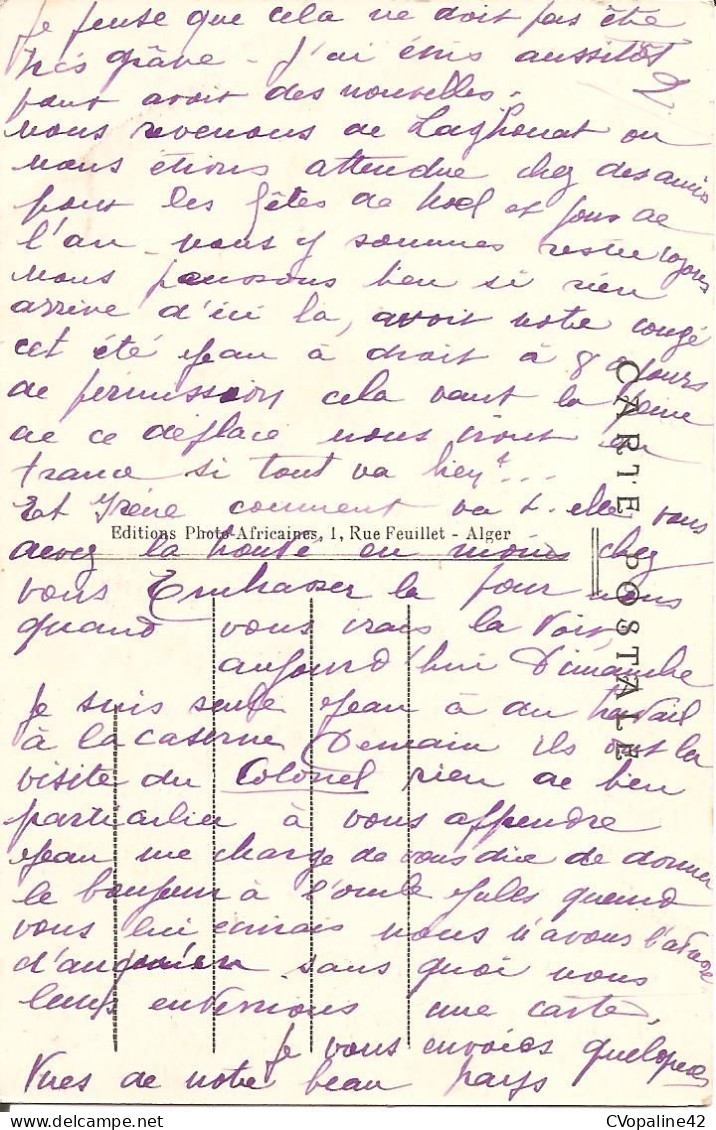 Je pense que cela ne doit pas être
très grâve - J'ai écris aussitôt
pour avoir des nouvelles. 2
nous revenons de Laghouat ou
nous étions attendue chez des amis
pour les fêtes de Noel et jour de
l'an - nous y sommes restée 10 jours
nous pensons bien si rien
arrive d'ici là, avoir notre congé
cet été Jean à droit à 8 jours
de permission cela vaut la peine
de ce déplace nous irons en
France si tout va bien...
Et Irène comment va t-elle vous
Editions Photo-Africaines, 1, Rue Feuillet - Alger
avez la bonté en moins chez
vous Embrasser la pour nous
quand vous irais la voir,
aujourd'hui Dimanche
Je suis seule Jean à du travail
à la caserne Demain ils ont la
visite du Colonel rien de bien
particulier à vous apprendre
Jean me charge de vous dire de donner
le bonjour à l'oncle Jules quand
vous lui écrirais nous n'avons l'adresse
d'aucun sans quoi nous
leurs enverrions une carte,
Je vous envoies quelques
vues de notre beau pays
CARTE POSTALE
CVopaline42